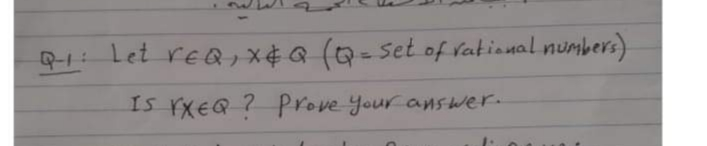 Q-1: Let r∈Q, x∉Q (Q = set of rational numbers)
Is rx∈Q? Prove your answer.